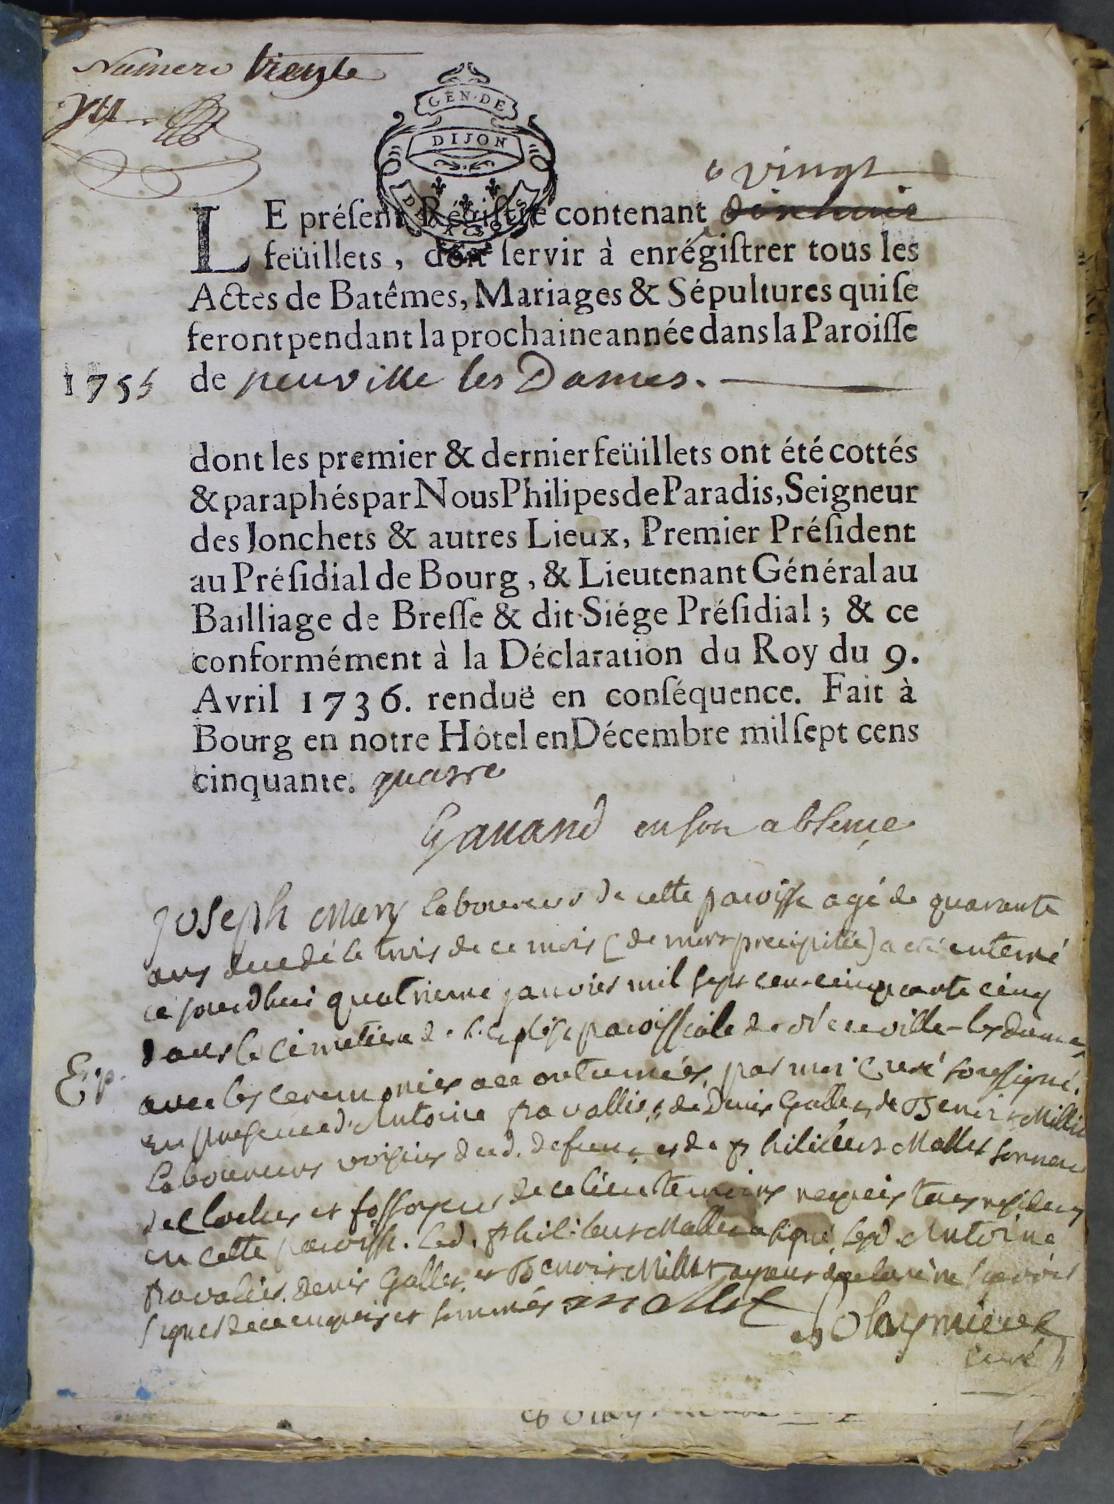 Numero trente
GEN·DE
DIJON
vingt
LE préſent Régiſtre contenant dixhuit
feüillets, doit ſervir à enrégiſtrer tous les
Actes de Batêmes, Mariages & Sépultures qui ſe
feront pendant la prochaine année dans la Paroiſſe
1755 de neuville les Dames.
dont les premier & dernier feüillets ont été cottés
& paraphés par Nous Philipes de Paradis, Seigneur
des Jonchets & autres Lieux, Premier Préſident
au Préſidial de Bourg, & Lieutenant Général au
Bailliage de Breſſe & dit Siége Préſidial; & ce
conformément à la Déclaration du Roy du 9.
Avril 1736. renduë en conſéquence. Fait à
Bourg en notre Hôtel en Décembre mil ſept cens
cinquante. quatre
en son absence
Joseph Mary laboureur de cette paroisse agé de quarante
ans decedé le trois de ce mois (de mort precipitée) a eté enterré
ce jourdhui quatrieme janvier mil sept cen cinquante cinq
dans le cimetiere de l'eglise paroissiale de Neuville-les dames
avec les ceremonies accoutumées, par moi Curé soussigné.
en presence d'Antoine Ravallis, de Denis Gallet, de Benoit Millet
laboureurs voisins dud. defunt, et de philibert Mallet sonneur
de cloches et fossoyeur de ce lieu temoins requis tous residens
en cette paroisse. led. philibert Mallet a signé, lesd. Antoine
Ravallis, Denis Gallet, et Benoit Millet ayant declaré ne sçavoir
signer de ce enquis et sommés Mallet
curé